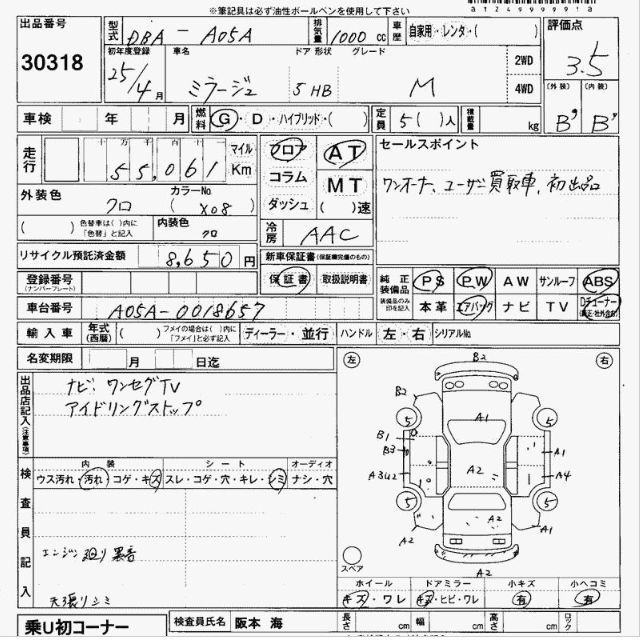 ※筆記具は必ず油性ボールペンを使用して下さい
a124999991a
出品番号 30318
型式 DBA - A05A 排気量 1000 cc 車歴 自家用・レンタ・( ) 評価点 3.5
初年度登録 25/4月 車名 ミラージュ ドア 形状 5 HB グレード M 2WD 4WD
(外装) B' (内装) B'
車検 年 月 燃料 G・D・ハイブリッド・( ) 定員 5( )人 積載量 kg
走行 十万 万 千 百 十 一 55,061 マイル Km
フロア コラム ダッシュ AT MT ( )速
セールスポイント
ワンオーナー、ユーザー買取車、初出品
外装色 クロ カラーNo ( X08 )
( ) 色替車は( )内に「色替」と記入 内装色 クロ
冷房 AAC
リサイクル預託済金額 8,650 円
新車保証書(保証継続完備のもの)
保証書 取扱説明書
登録番号 (ナンバープレート)
純正装備品 装備品のみ印を記入 PS PW AW サンルーフ ABS
本革 エアバック ナビ TV Dチューナー(純正・社外含む)
車台番号 A05A-0018657
輸入車 年式(西暦) ( ) フメイの場合は( )内に「フメイ」と必ず記入 ディーラー・並行 ハンドル 左・右 シリアルNo.
名変期限 月 日迄
出品店記入(注意事項)
ナビ ワンセグTV
アイドリングストップ
左 右
B2
B2
A1
5 5
B1
B3
A1
A3U2
A2
A4
5 5
A2
A2
A1
A2
A2
スペア
検査員記入
内装 シート オーディオ
ウス汚れ・汚れ・コゲ・キズ スレ・コゲ・穴・キレ・シミ ナシ・穴
エンジン廻り異音
天張りシミ
ホイール ドアミラー 小キズ 小ヘコミ
キズ・ワレ キズ・ヒビ・ワレ 有 有
乗U初コーナー 検査員氏名 阪本 海 長さ cm 幅 cm 高さ cm ロック